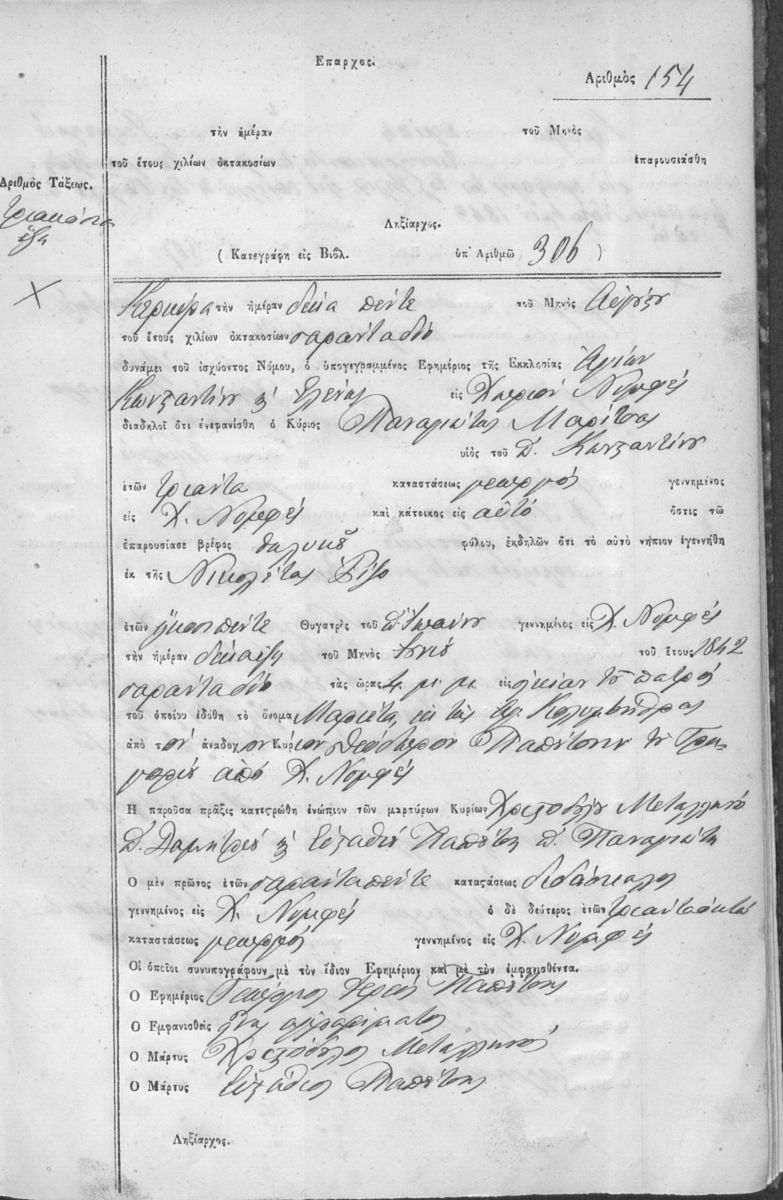 Επαρχος.
Αριθμὸς 154
τὴν ἡμέραν τοῦ Μηνὸς
τοῦ ἔτους χιλίων ὀκτακοσίων ἐπαρουσιάσθη
Αριθμὸς Τάξεως.
τριακόσια
ἕξη
Ληξίαρχος.
( Κατεγράφη εἰς Βιβλ. ὑπ' Αριθμῶ 306 )
Κέρκυρα τὴν ἡμέραν δέκα πέντε τοῦ Μηνὸς Αὐγούςου
τοῦ ἔτους χιλίων ὀκτακοσίων σαράντα δύο
δυνάμει τοῦ ἰσχύοντος Νόμου, ὁ ὑπογεγραμμένος Εφημέριος τῆς Εκκλησίας Ἁγίων
Κωνςαντίνου κ' Ἑλένης εἰς Χωρίον Νυμφές
διαδηλοῖ ὅτι ἐνεφανίσθη ὁ Κύριος Παναγιώτης Μαρίτσας
υἱὸς τοῦ Κωνςαντίνου
ἐτῶν τριάντα καταστάσεως γεωργός γεννημένος
εἰς Χ. Νυμφές καὶ κάτοικος εἰς αὐτό ὅστις τῶ
ἐπαρουσίασε βρέφος θηλυκοῦ φύλου, ἐκδηλῶν ὅτι τὸ αὐτὸ νήπιον ἐγεννήθη
ἐκ τῆς Νικολέτας Ρίζο
ἐτῶν ἥκοσι πέντε Θυγατρὸς τοῦ Ἰωάννου γεννημένος εἰς Χ. Νυμφές
τὴν ἡμέραν δέκα ἕξη τοῦ Μηνὸς Ἰουνίου τοῦ ἔτους 1842
σαράντα δύο τὰς ὥρας 4 μ. μ. εἰς οἰκίαν τοῦ πατρός
τοῦ ὁποίου ἐδόθη τὸ ὄνομα Μαριέτα, ἐκ τῆς Ἁγ. Κολυμβήθρας
ἀπὸ τὸν ἀνάδοχον Κύριον Θεόδωρον Παπέτσην τοῦ Γρη-
γορίου ἀπό Χ. Νυμφές
Η παροῦσα πρᾶξις κατεςρώθη ἐνώπιον τῶν μαρτύρων Κυρίων Χριςοδούλου Μεταλληνοῦ
Δημητρίου κ' Εὐςαθίου Παπέτση Παναγιώτη
Ο μὲν πρῶτος ἐτῶν σαράντα πέντε καταςάσεως διδάσκαλος
γεννημένος εἰς Χ. Νυμφές ὁ δὲ δεύτερος ἐτῶν τριάντα ὀκτώ
καταστάσεως γεωργός γεννημένος εἰς Χ. Νυμφές
Οἱ ὁποῖοι συνυπογράφουν μὲ τὸν ἴδιον Εφημέριον καὶ μὲ τὸν ἐμφανισθέντα.
Ο Εφημέριος Γεώργιος Ἱερεύς Παπέτσης
Ο Εμφανισθεὶς ὄντας ἀγράμματος
Ο Μάρτυς Χριςόδουλος Μεταλληνός
Ο Μάρτυς Εὐςάθιος Παπέτσης
Ληξίαρχος.